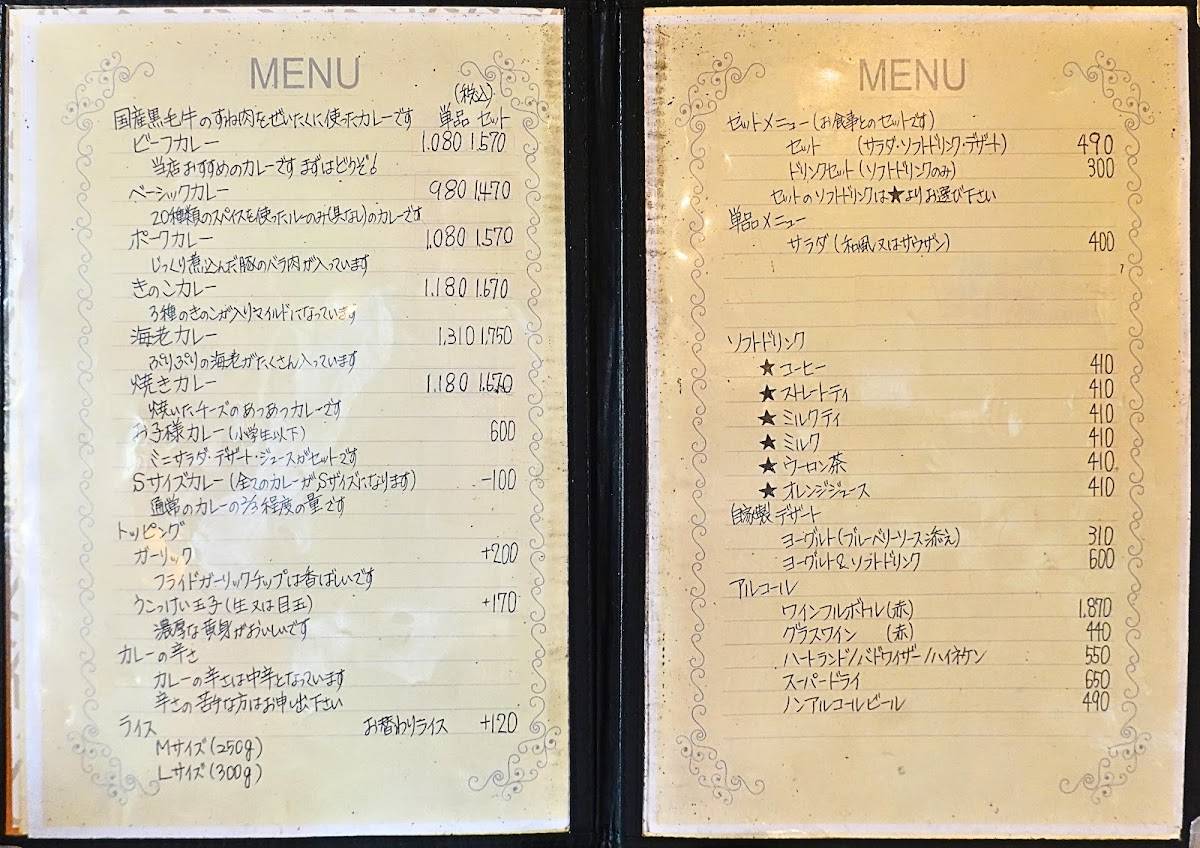 MENU
(税込)
国産黒毛牛のすね肉をぜいたくに使ったカレーです 単品 セット
ビーフカレー 1.080 1.570
当店おすすめのカレーです まずはどうぞ!
ベーシックカレー 980 1.470
20種類のスパイスを使ったルーのみ(具なし)のカレーです
ポークカレー 1.080 1.570
じっくり煮込んだ豚のバラ肉が入っています
きのこカレー 1.180 1.670
3種のきのこが入りマイルドになっています
海老カレー 1.310 1.750
ぷりぷりの海老がたくさん入っています
焼きカレー 1.180 1.670
焼いたチーズのあつあつカレーです
お子様カレー(小学生以下) 600
ミニサラダ・デザート・ジュースがセットです
Sサイズカレー(全てのカレーがSサイズになります) -100
通常のカレーの2/3程度の量です
トッピング
ガーリック +200
フライドガーリックチップは香ばしいです
うこっけい玉子(生又は目玉) +170
濃厚な黄身がおいしいです
カレーの辛さ
カレーの辛さは中辛となっています
辛さの苦手な方はお申し出下さい
ライス お替わりライス +120
Mサイズ(250g)
Lサイズ(300g)
MENU
セットメニュー(お食事とのセットです)
セット (サラダ・ソフトドリンク・デザート) 490
ドリンクセット(ソフトドリンクのみ) 300
セットのソフトドリンクは★よりお選び下さい
単品メニュー
サラダ(和風又はサウザン) 400
ソフトドリンク
★コーヒー 410
★ストレートティ 410
★ミルクティ 410
★ミルク 410
★ウーロン茶 410
★オレンジジュース 410
自家製デザート
ヨーグルト(ブルーベリーソース添え) 310
ヨーグルト&ソフトドリンク 600
アルコール
ワインフルボトル(赤) 1.870
グラスワイン (赤) 440
ハートランド/バドワイザー/ハイネケン 550
スーパードライ 650
ノンアルコールビール 490